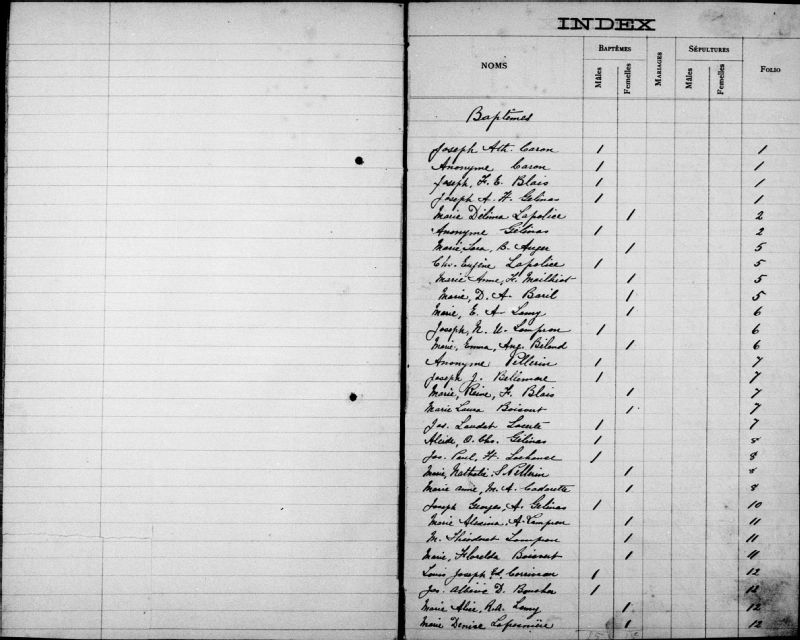 INDEX
NOMS BAPTÊMES MARIAGES SÉPULTURES FOLIO
Mâles Femelles Mâles Femelles
Baptêmes
Joseph Ath. Caron 1 1
Anonyme Caron 1 1
Joseph, F. E. Blais 1 1
Joseph A. H. Gelinas 1 1
Marie Délima Lapolice 1 2
Anonyme Gelinas 1 2
Marie, Lara, B. Auger 1 5
Chs. Eugène Lapolice 1 5
Marie Anne, F. Mailhiot 1 5
Marie, D. A. Baril 1 5
Marie, E. A. Lamy 1 6
Joseph, N. U. Lampron 1 6
Marie, Emma, Ang. Béland 1 6
Anonyme Pellerin 1 7
Joseph J. Bellemare 1 7
Marie, Reine, F. Blais 1 7
Marie Laura Boisvert 1 7
Jos. Laudat 1 7
Alcide, O. Chs. Gelinas 1 8
Jos. Paul, H. Lachance 1 8
Marie, Nathalie, S. Pellerin 1 8
Marie Anne, M. A. Cadorette 1 8
Joseph Georges, A. Gelinas 1 10
Marie Alexina, A. Lampron 1 11
M. Lampron 1 11
Marie, Florelda Boisvert 1 11
Louis Joseph Ed. 1 12
Jos. D. Boucher 1 12
Marie Alice, R.A. Lamy 1 12
Marie Denise 1 12